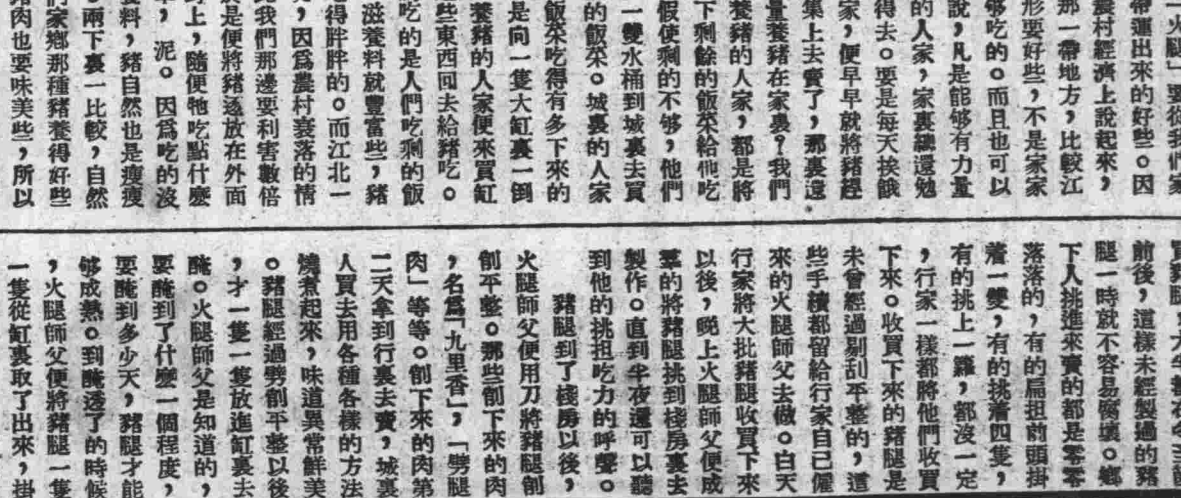 火腿」要從我們家
帶運出來的好些。因
農村經濟上說起來，
那一帶地方，比較江
形要好些，不是家家
够吃的。而且也可以
說，凡是能够有力量
的人家，家裏總還勉
得去。要是每天挨餓
家，便早早就將豬趕
集上去賣了，那裏還
量養豬在家裏？我們
養豬的人家，都是將
下剩餘的飯菜給牠吃
假使剩的不够，他們
一雙水桶到城裏去買
的飯菜。城裏的人家
飯菜吃得有多下來的
是向一隻大缸裏一倒
養豬的人家便來買缸
些東西回去給豬吃。
吃的是人們吃剩的飯
滋養料就豐富些，豬
得胖胖的。而江北一
，因爲農村衰落的情
比我們那邊要利害數倍
是便將豬逐放在外面
上，隨便牠吃點什麼
，泥。因爲吃的沒
養料，豬自然也是瘦瘦
，兩下裏一比較，自然
們家鄉那種豬養得好些
豬肉也要味美些，所以
買豬腿，大半都在冬至節
前後，這樣未經製過的豬
腿一時就不容易腐壞。鄉
下人挑進來賣的都是零零
落落的，有的扁担前頭掛
着一雙，有的挑着四隻，
有的挑上一籮，都沒一定
，行家一樣都將他們收買
下來。收買下來的豬腿是
未曾經過剔刮平整的，這
些手續都留給行家自己僱
來的火腿師父去做。白天
行家將大批豬腿收買下來
以後，晚上火腿師父便成
羣的將豬腿挑到棧房裏去
製作。直到半夜還可以聽
到他的挑担吃力的呼聲。
豬腿到了棧房以後，
火腿師父便用刀將豬腿創
創平整。那些創下來的肉
，名爲「九里香」，「劈腿
肉」等等。創下來的肉第
二天拿到行裏去賣，城裏
人買去用各種各樣的方法
燒煮起來，味道異常鮮美
。豬腿經過劈創平整以後
，才一隻一隻放進缸裏去
醃。火腿師父是知道的，
要醃到了什麼一個程度，
要醃到多少天，豬腿才能
够成熟。到醃透了的時候
，火腿師父便將豬腿一隻
一隻從缸裏取了出來，掛